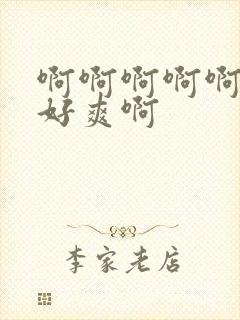 啊啊啊啊啊
好爽啊
李家老店